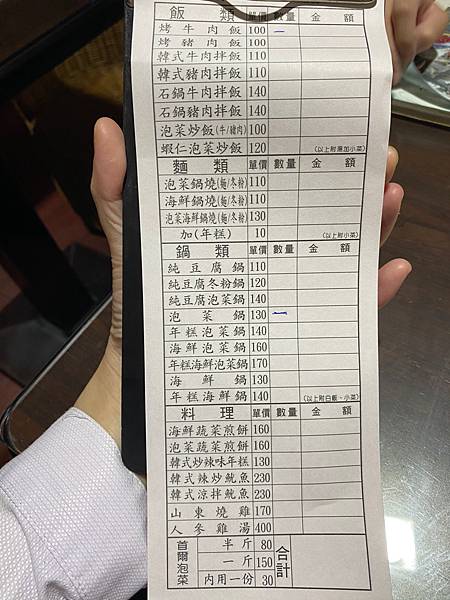 飯類 單價 數量 金額
烤牛肉飯 100 一
烤豬肉飯 100
韓式牛肉拌飯 110
韓式豬肉拌飯 110
石鍋牛肉拌飯 140
石鍋豬肉拌飯 140
泡菜炒飯(牛/豬肉) 100
蝦仁泡菜炒飯 120 (以上附湯加小菜)
麵類 單價 數量 金額
泡菜鍋燒(麵/冬粉) 110
海鮮鍋燒(麵/冬粉) 110
泡菜海鮮鍋燒(麵/冬粉) 130
加(年糕) 10 (以上附小菜)
鍋類 單價 數量 金額
純豆腐鍋 110
純豆腐冬粉鍋 120
純豆腐泡菜鍋 140
泡菜鍋 130 一
年糕泡菜鍋 140
海鮮泡菜鍋 160
年糕海鮮泡菜鍋 170
海鮮鍋 130
年糕海鮮鍋 140 (以上附白飯、小菜)
料理 單價 數量 金額
海鮮蔬菜煎餅 160
泡菜蔬菜煎餅 160
韓式炒辣味年糕 130
韓式辣炒魷魚 230
韓式涼拌魷魚 230
山東燒雞 170
人參雞湯 400
首爾泡菜 半斤 80 合計
一斤 150
內用一份 30